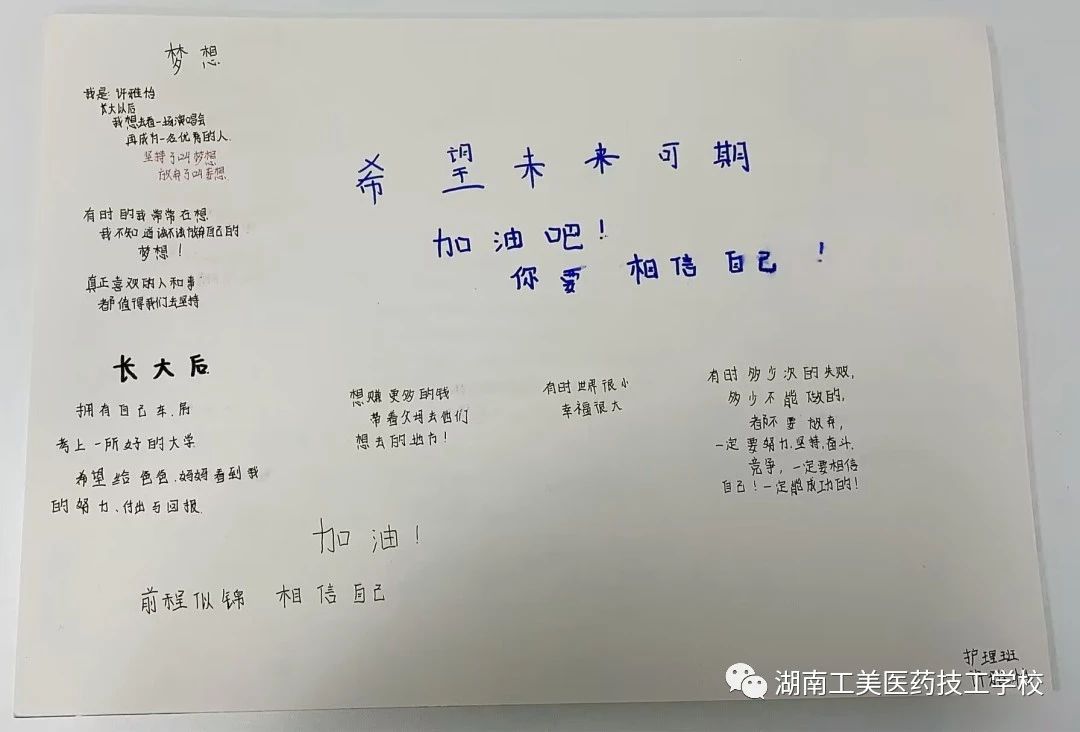 梦想
我是:许雅怡
长大以后
我想去看一场演唱会
再成为一名优秀的人.
坚持了叫梦想
放弃了叫妄想.
有时的我常常在想
我不知道该不该放弃自己的
梦想!
真正喜欢的人和事
都值得我们去坚持
希望未来可期
加油吧!
你要相信自己!
长大后
拥有自己车.房
考上一所好的大学
希望给爸爸.妈妈看到我
的努力、付出与回报.
想赚更多的钱
带着父母去他们
想去的地方!
有时世界很小
幸福很大
有时多少次的失败,
多少不能做的,
都不要放弃,
一定要努力.坚持.奋斗.
竞争,一定要相信
自己!一定能成功的!
加油!
前程似锦 相信自己
护理班
湖南工美医药技工学校